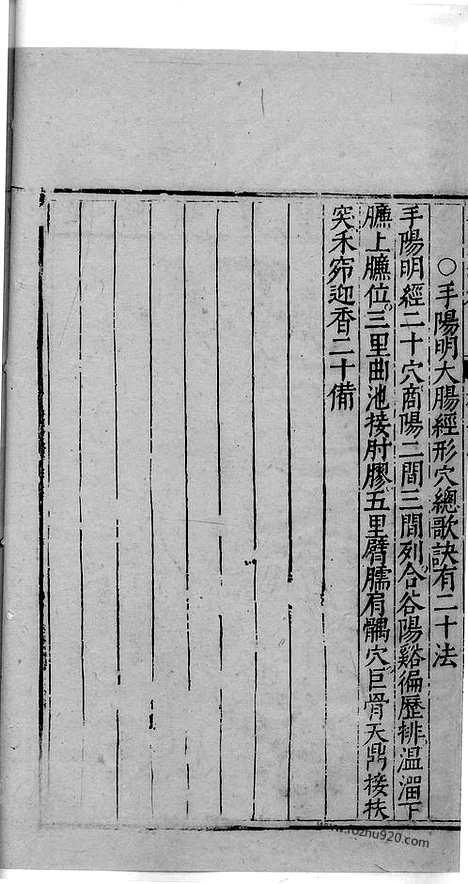 ○手陽明大腸經形穴總歌訣有二十法
手陽明經二十穴商陽二間三間列合谷陽谿徧歷排溫溜下
臁上臁位三里曲池接肘膠五里臂臑肩髃穴巨骨天鼎接扶
突禾窌迎香二十備